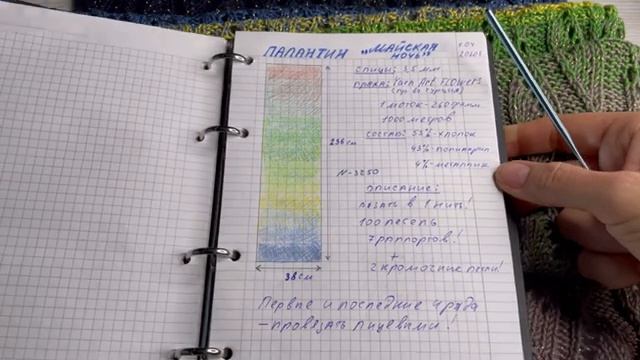 ПАЛАНТИН „МАЙСКАЯ НОЧЬ"
СПИЦЫ: 3,5 мм
ПРЯЖА: Yarn Art FLOWERS
1 моток-260 грамм
1000 метров
СОСТАВ: 53%-хлопок
43%-полиакрил
4%-металлик
236 см
N-3250
ОПИСАНИЕ:
Вязать в 1 нить!
100 петель
7 раппортов!
+
2 кромочные петли!
38 см
Первые и последние 4 ряда
– провязать лицевыми!